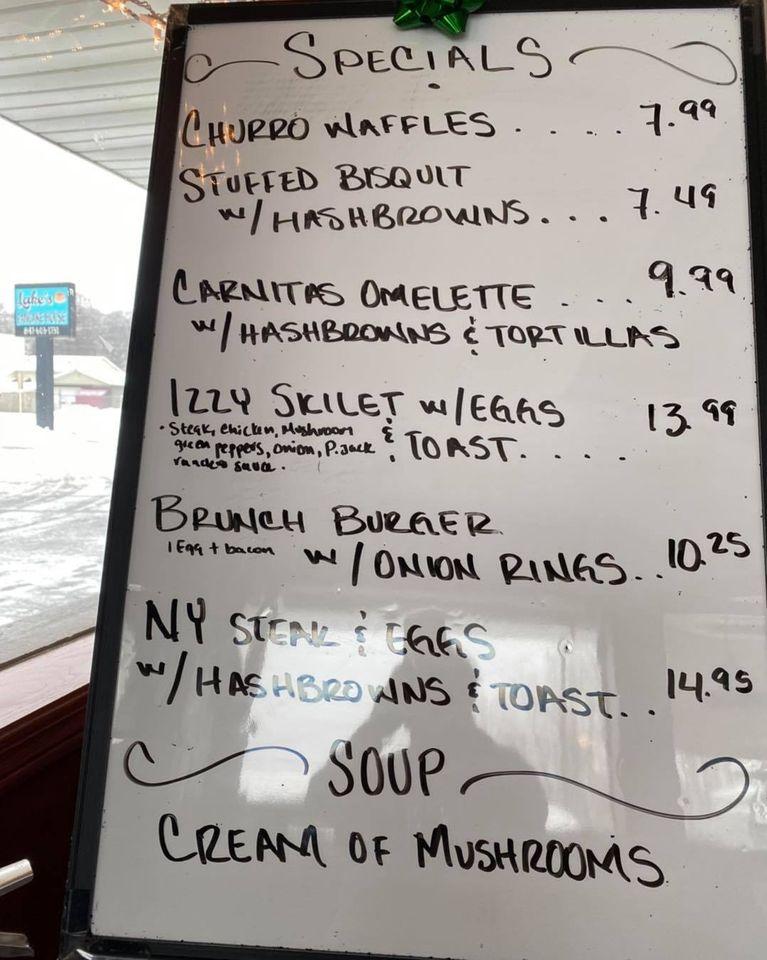 SPECIALS
CHURRO WAFFLES . . . . . 7.99
STUFFED BISQUIT
W/HASHBROWNS. . . 7.49
CARNITAS OMELETTE . . . . 9.99
W/HASHBROWNS & TORTILLAS
IZZY SKILET W/EGGS 13.99
• Steak, chicken, Mushroom
green peppers, onion, P.Jack & TOAST. . . . .
BRUNCH BURGER
1 Egg + bacon W/ONION RINGS. . 10.25
NY STEAK & EGGS
W/HASHBROWNS & TOAST. . . 14.95
SOUP
CREAM OF MUSHROOMS
Luke's